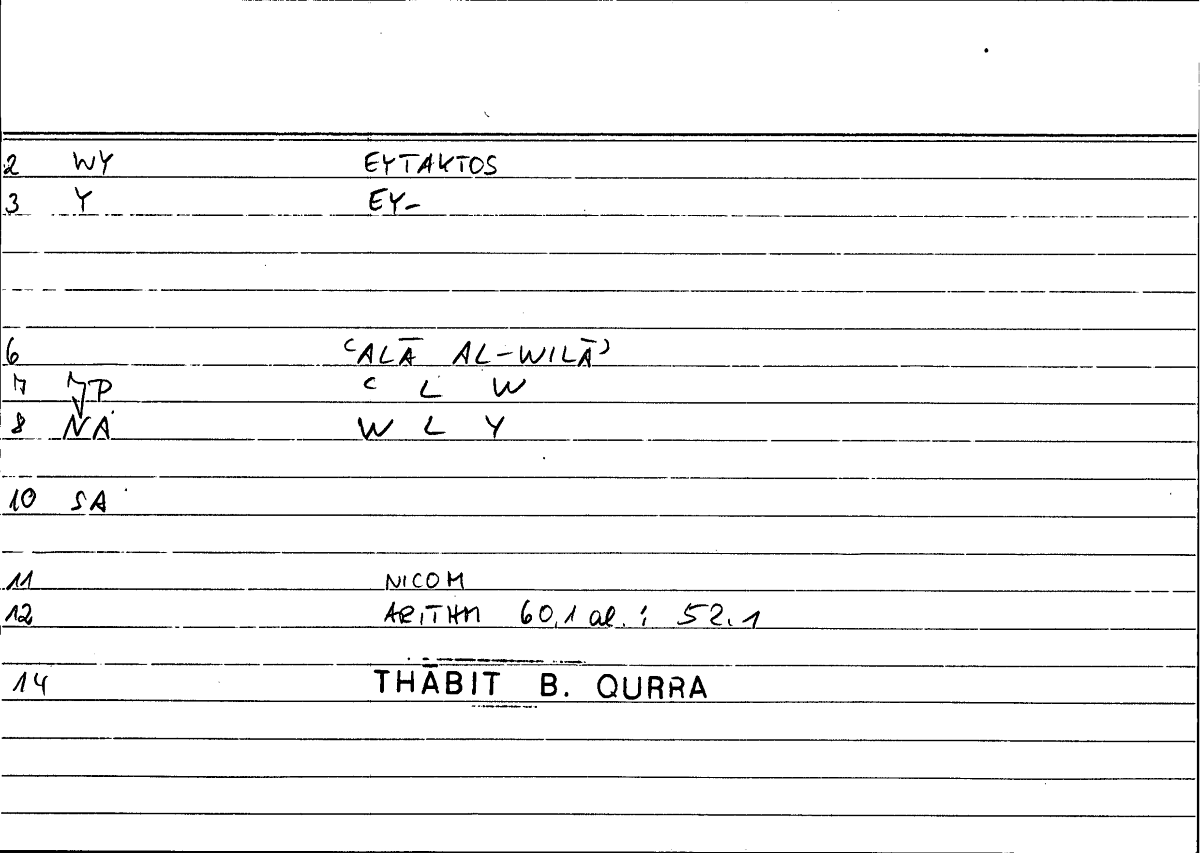 2 WY EYTAKTOS
3 Y EY-
6 ʿALĀ AL-WILĀʾ
7 JP ʿ L W
8 NA W L Y
10 SA
11 NICOM
12 ARITHM 60,1 al. ; 52.1
14 THĀBIT B. QURRA